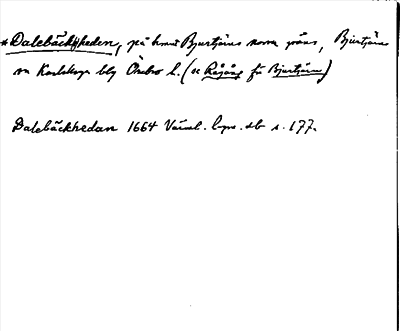 *Dalebäckheden, på hmt Bjurtjärns norra gräns, Bjurtjärn
sn Karlskoga blg Örebro l. (se Rågång för Bjurtjärn)
Dalebäckhedan 1664 Värml. s. 177.